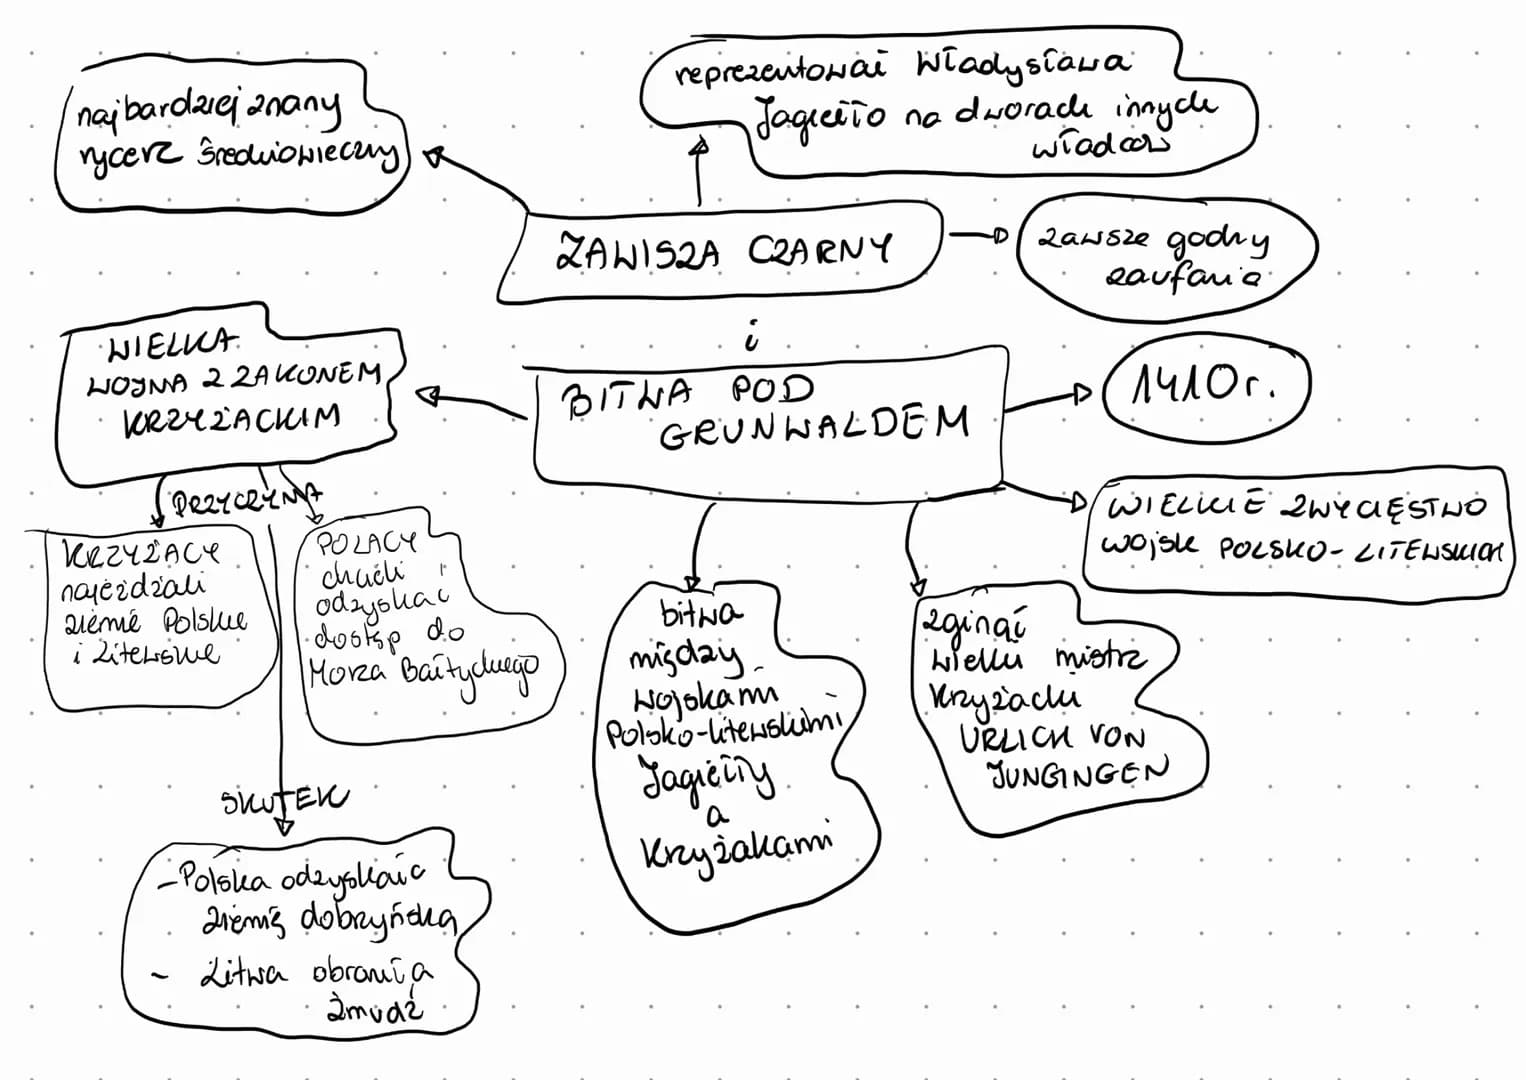 najbardziej znany
rycerz średniowieczny
reprezentował Władysława
Jagiełło na dworach innych
władców
ZAWISZA CZARNY
zawsze godny
zaufania
i
BITWA POD
GRUNWALDEM
1410r.
WIELKIE ZWYCIĘSTWO
wojsk POLSKO-LITEWSKICH
WIELKA
WOJNA Z ZAKONEM
KRZYŻACKIM
PRZYCZYNA
KRZYŻACY
najeżdżali
ziemie Polskie
i Litewskie
POLACY
chcieli
odzyskać
dostęp do
Morza Bałtyckiego
SKUTEK
-Polska odzyskała
ziemię dobrzyńską
- Litwa obroniła
Żmudź
bitwa
między
wojskami
Polsko-litewskimi
Jagiełły
a
Krzyżakami
zginął
wielki mistrz
Krzyżacki
URLICH VON
JUNGINGEN